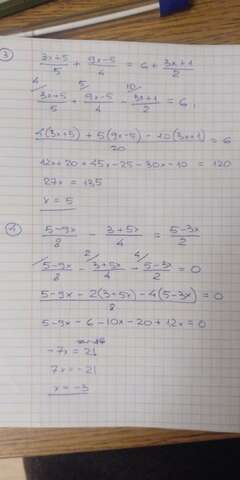 ③ (3x+5)/5 + (9x-5)/4 = 6 + (3x+1)/2
4 5 10
(3x+5)/5 + (9x-5)/4 - (3x+1)/2 = 6
(4(3x+5) + 5(9x-5) - 10(3x+1))/20 = 6
12x+20+45x-25-30x-10 = 120
27x = 135
x = 5
④ (5-9x)/8 - (3+5x)/4 = (5-3x)/2
2 4
(5-9x)/8 - (3+5x)/4 - (5-3x)/2 = 0
(5-9x-2(3+5x)-4(5-3x))/8 = 0
5-9x-6-10x-20+12x=0
-7x = 21
7x = -21
x = -3